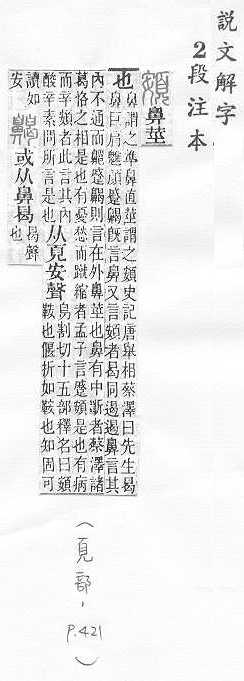 説文解字
2段注本
頞 鼻莖
也 鼻謂之準鼻直莖謂之頞史記唐舉相蔡澤曰先生曷
鼻巨肩魋顏蹙齃旣言鼻又言頞者曷同遏遏鼻言其
內不通而齃蹙齃則言在外鼻莖也鼻有中斷者蔡澤諸
葛恪之相是也有憂愁而蹴縮者孟子言蹙頞是也有病
而辛頞者此言其內
酸辛素問所言是也
从頁安聲
烏割切十五部釋名曰頞
鞍也偃折如鞍也如固可
讀如
安
齃 或从鼻曷
曷聲
也
(頁部, P.421)